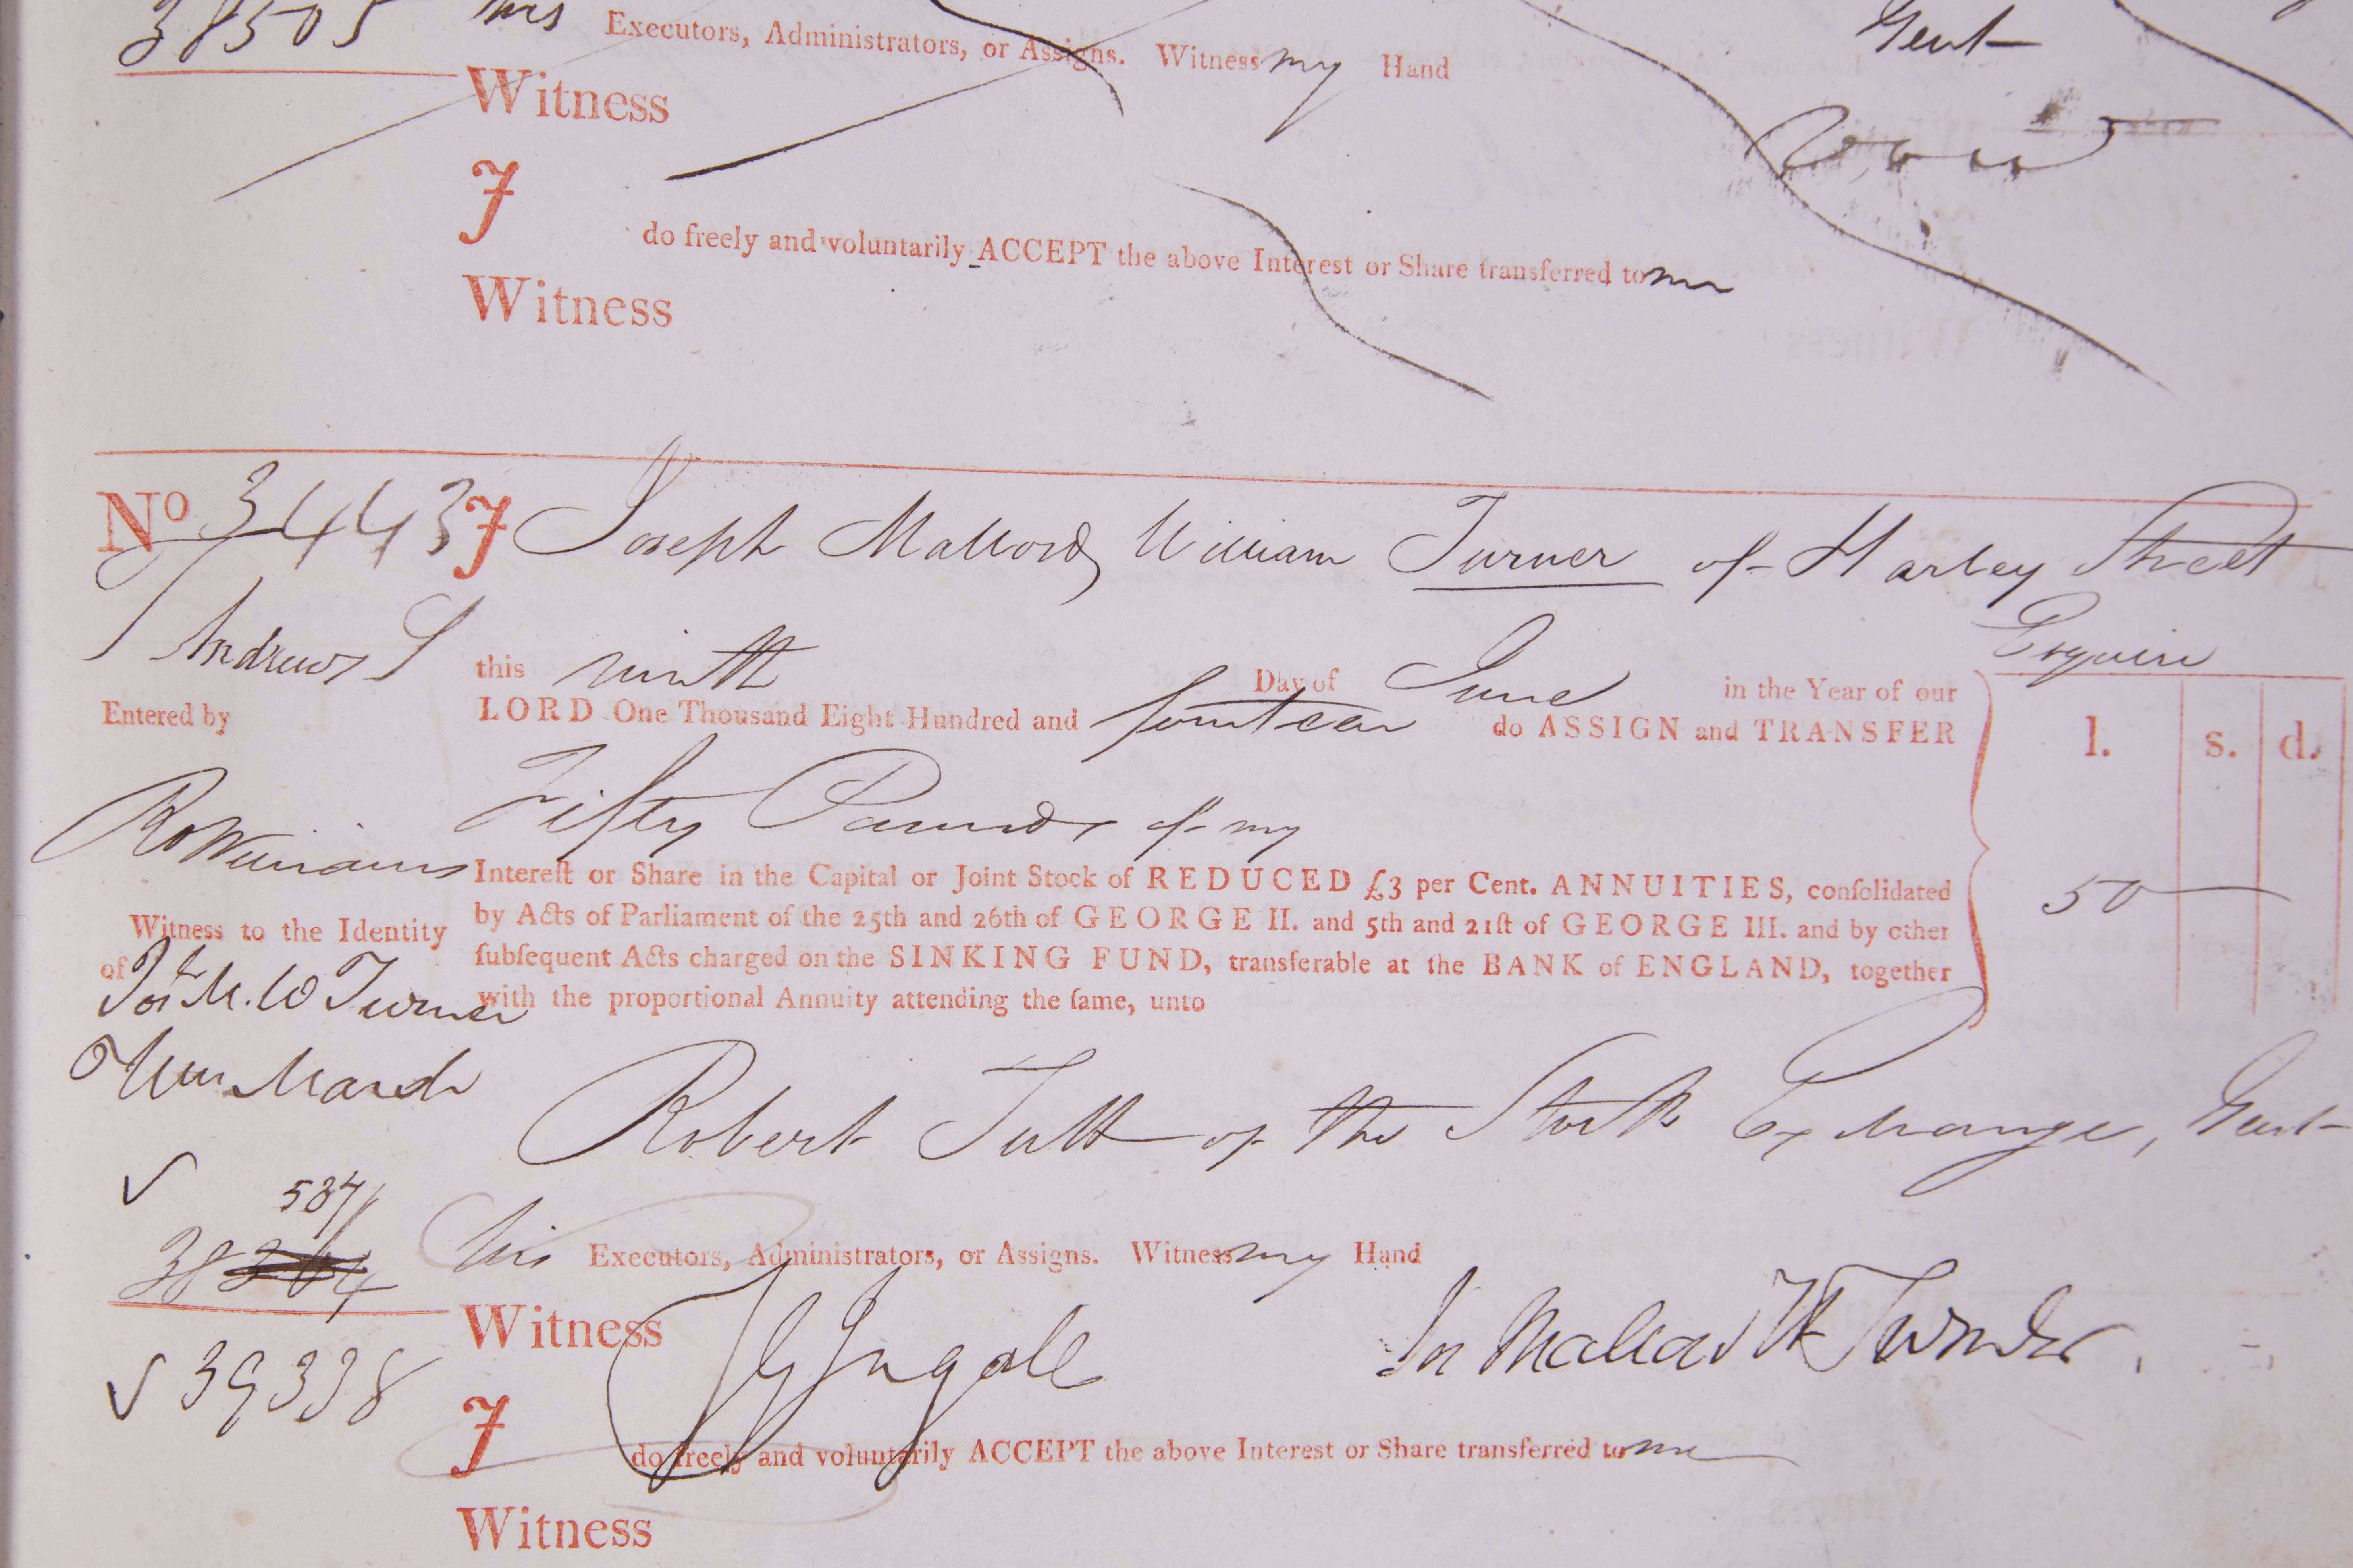 38505 his Executors, Administrators, or Assigns. Witness my Hand
Gent
Witness
Void
I
do freely and voluntarily ACCEPT the above Interest or Share transferred to me
Witness
No 3443 I Joseph Mallord William Turner of Harley Street
Esquire
Andrews
this ninth Day of June in the Year of our
Entered by
LORD One Thousand Eight Hundred and fourteen do ASSIGN and TRANSFER
l. s. d.
Fifty Pounds of my
Ro Williams
Intereſt or Share in the Capital or Joint Stock of REDUCED £3 per Cent. ANNUITIES, conſolidated
50
Witness to the Identity
by Acts of Parliament of the 25th and 26th of GEORGE II. and 5th and 21ſt of GEORGE III. and by other
of
ſubſequent Acts charged on the SINKING FUND, transferable at the BANK of ENGLAND, together
Josh M. W Turner
with the proportional Annuity attending the ſame, unto
Wm March
Robert Tutt of the Stock Exchange, Gent
his Executors, Administrators, or Assigns. Witness my Hand
Witness
39338
I
do freely and voluntarily ACCEPT the above Interest or Share transferred to me
Witness